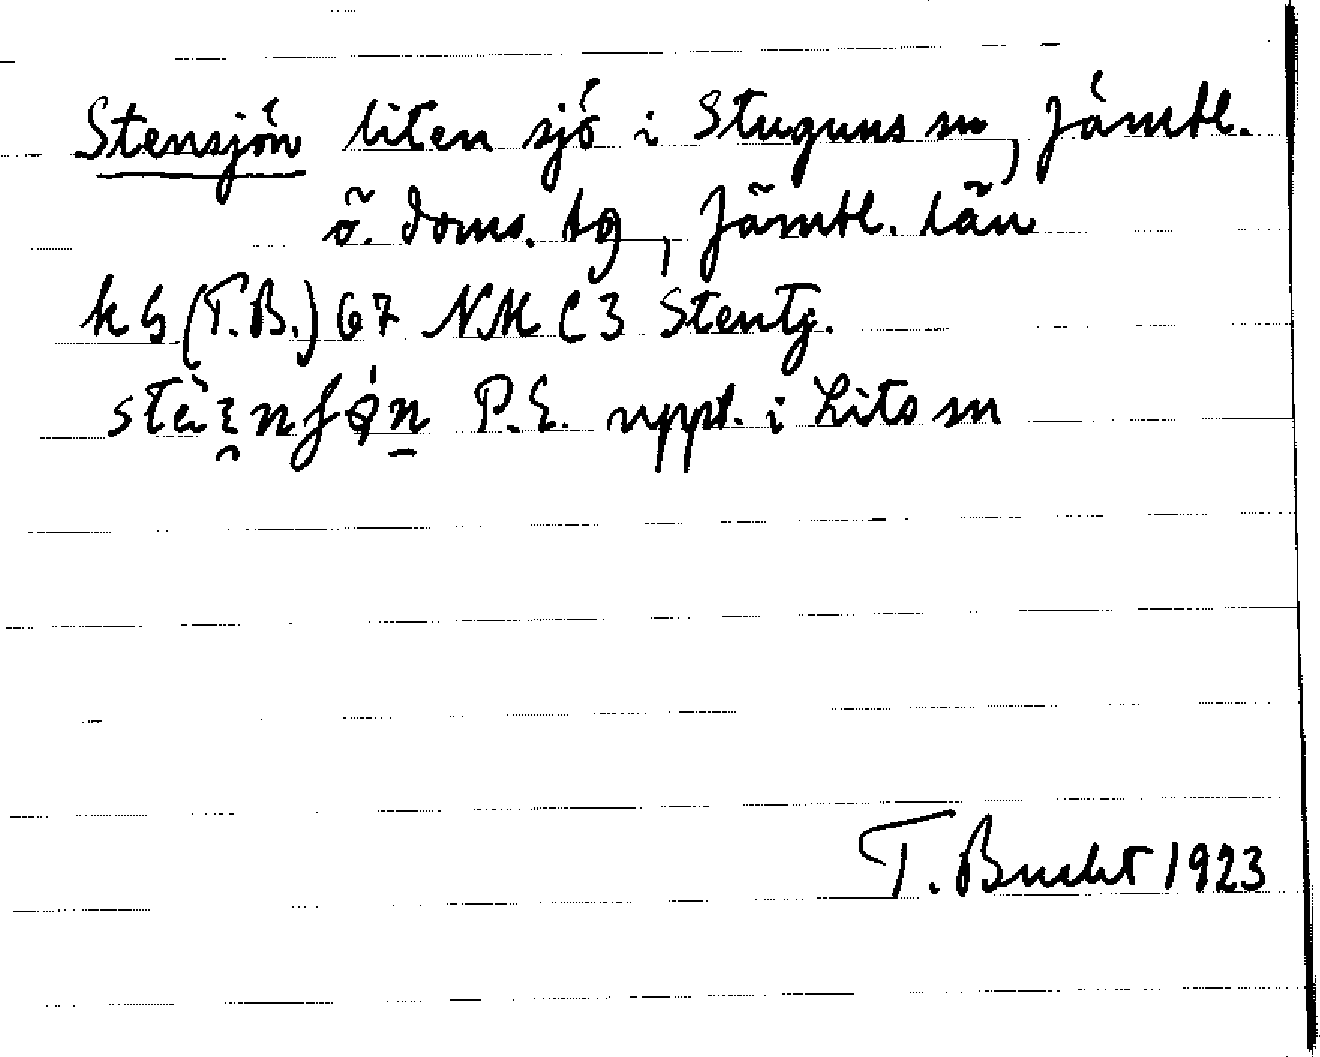 Stensjön liten sjö i Stuguns sn, Jämtl.
ö. doms. tg, Jämtl. län
k G (T.B.) 67 NM C 3 Stentj.
P.E. uppt. i Lits sn
T. Bucht 1923